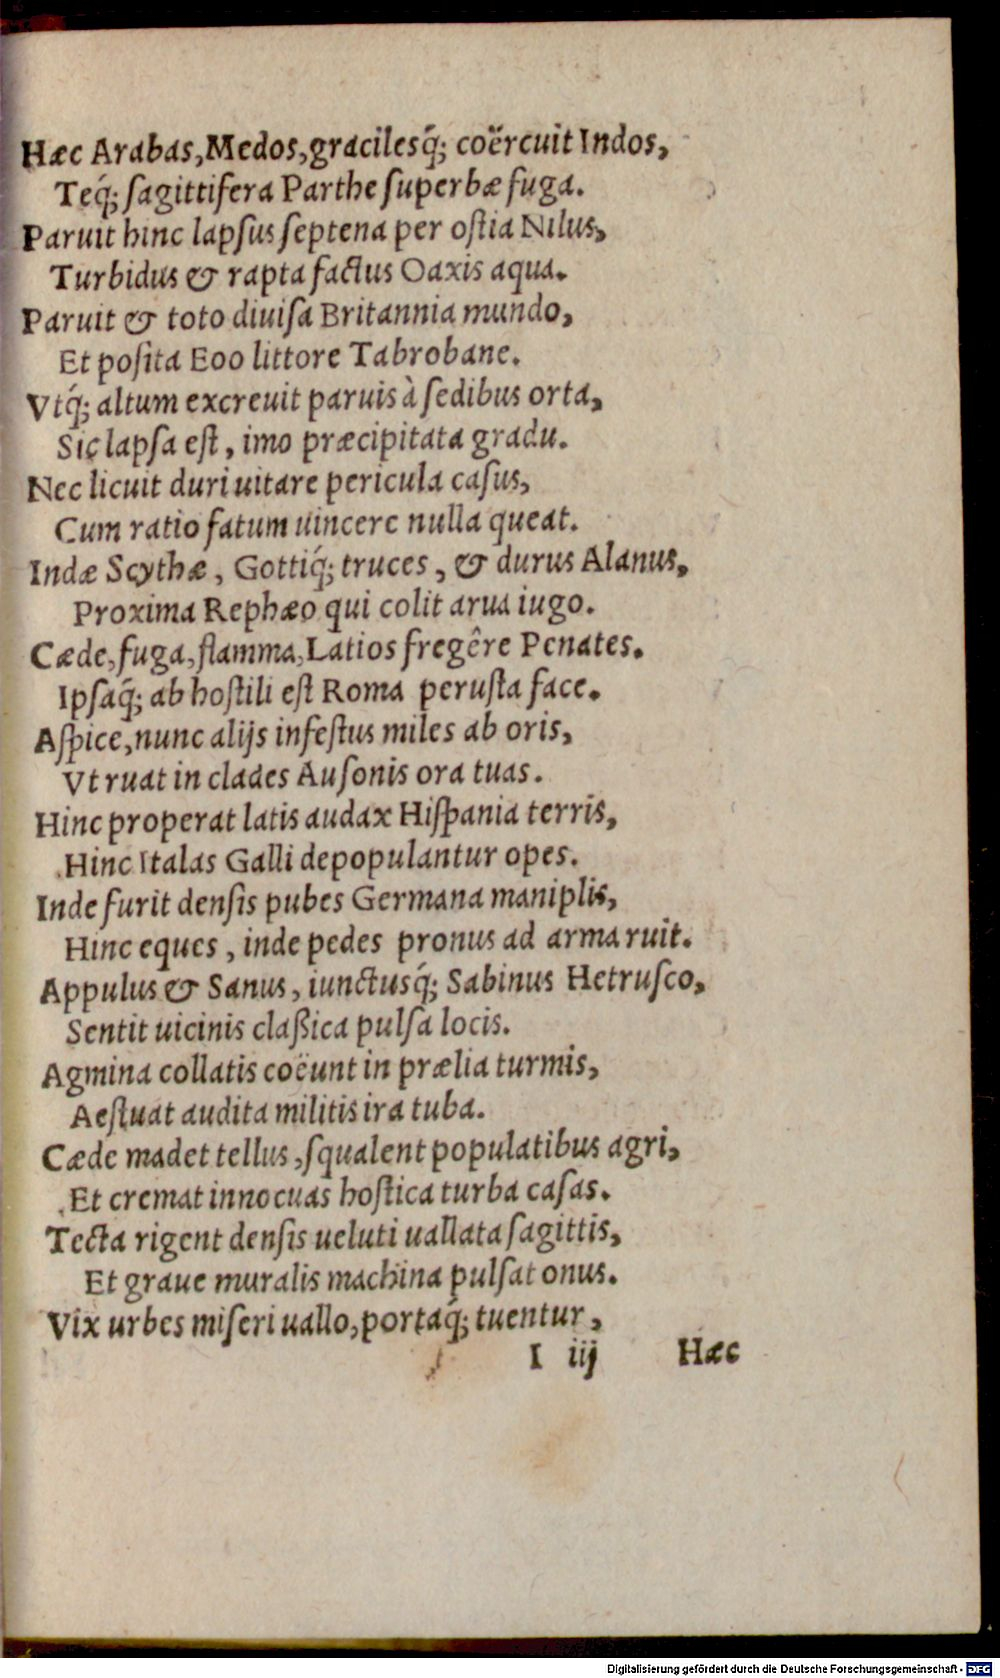 Hæc Arabas, Medos, gracilesq́; coërcuit Indos,
Teq́; sagittifera Parthe superbæ fuga.
Paruit hinc lapsus septena per ostia Nilus,
Turbidus & rapta factus Oaxis aqua.
Paruit & toto diuisa Britannia mundo,
Et posita Eoo littore Tabrobane.
Vtq́; altum excreuit paruis à sedibus orta,
Sic lapsa est, imo præcipitata gradu.
Nec licuit duri uitare pericula casus,
Cum ratio fatum uincere nulla queat.
Indæ Scythæ, Gottiq́; truces, & durus Alanus,
Proxima Rephæo qui colit arua iugo.
Cæde, fuga, flamma, Latios fregêre Penates.
Ipsaq́; ab hostili est Roma perusta face.
Aspice, nunc alijs infestus miles ab oris,
Vt ruat in clades Ausonis ora tuas.
Hinc properat latis audax Hispania terris,
Hinc Italas Galli depopulantur opes.
Inde furit densis pubes Germana maniplis,
Hinc eques, inde pedes pronus ad arma ruit.
Appulus & Sanus, iunctusq́; Sabinus Hetrusco,
Sentit uicinis claßica pulsa locis.
Agmina collatis coëunt in prælia turmis,
Aestuat audita militis ira tuba.
Cæde madet tellus, squalent populatibus agri,
Et cremat innocuas hostica turba casas.
Tecta rigent densis ueluti uallata sagittis,
Et graue muralis machina pulsat onus.
Vix urbes miseri uallo, portaq́; tuentur,
I iij Hæc
Digitalisierung gefördert durch die Deutsche Forschungsgemeinschaft - DFG